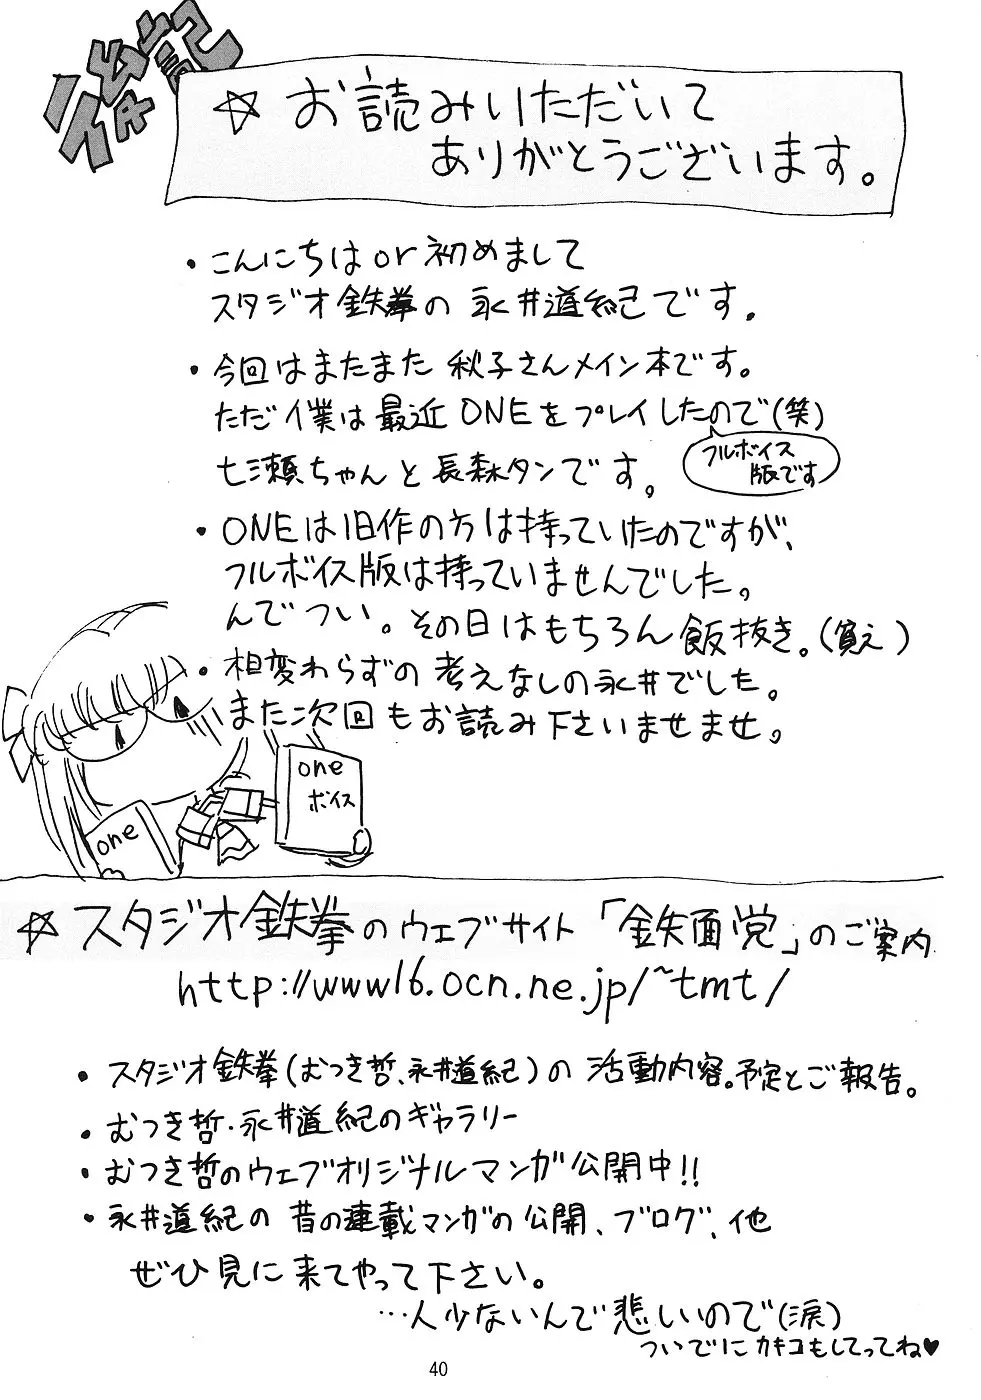 後記
☆ お読みいただいて
ありがとうございます。
・こんにちはor初めまして
スタジオ鉄拳の 永井道紀です。
・今回はまたまた 秋子さんメイン本です。
ただ僕は最近ONEをプレイしたので(笑)
フルボイス
版です
七瀬ちゃんと長森タンです。
・ONEは旧作の方は持っていたのですが、
フルボイス版は持っていませんでした。
んでつい。その日はもちろん飯抜き。(貧え)
・相変わらずの考えなしの永井でした。
また次回もお読み下さいませませ。
one
ボイス
one
☆スタジオ鉄拳のウェブサイト「鉄面党」のご案内
http://www16.ocn.ne.jp/~tmt/
・スタジオ鉄拳(むつき哲、永井道紀)の活動内容。予定とご報告。
・むつき哲・永井道紀のギャラリー
・むつき哲のウェブオリジナルマンガ公開中!!
・永井道紀の 昔の連載マンガの公開、ブログ、他
ぜひ見に来てやって下さい。
…人少ないんで悲しいので(涙)
ついでにカキコもしてってね♥
40